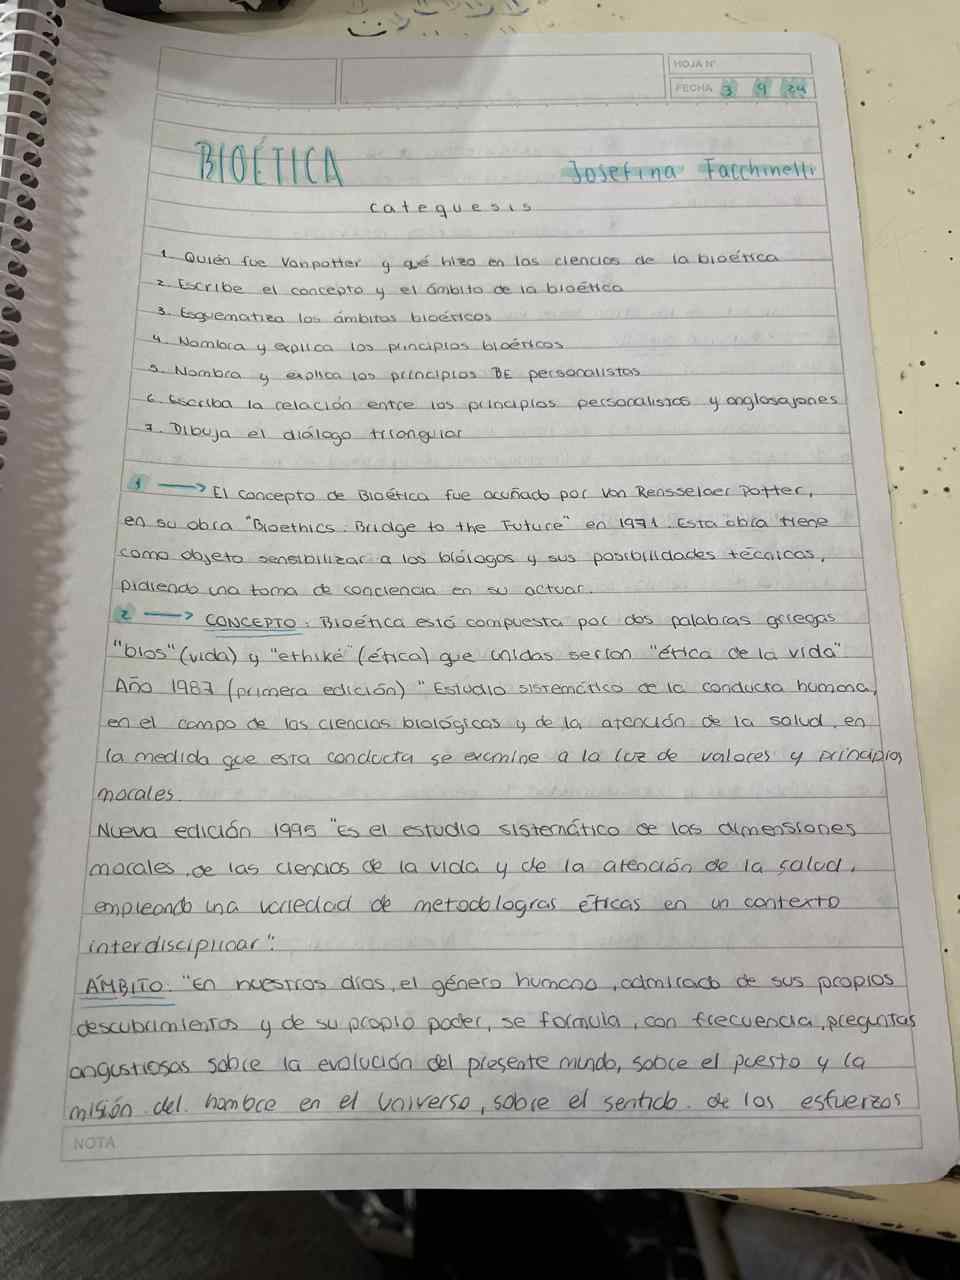 HOJA N°
FECHA 3 9 24
BIOÉTICA Josefina Facchinelli
catequesis
1. Quién fue Vanpotter y qué hizo en las ciencias de la bioética
2. Escribe el concepto y el ámbito de la bioética
3. Esquematiza los ámbitos bioéticos
4. Nombra y explica los principios bioéticos
5. Nombra y explica los principios BE personalistas
6. Escriba la relación entre los principios personalistas y anglosajones
7. Dibuja el diálogo triangular
1 → El concepto de Bioética fue acuñado por Von Rensselaer Potter,
en su obra "Bioethics: Bridge to the Future" en 1971. Esta obra tiene
como objeto sensibilizar a los biólogos y sus posibilidades técnicas,
pidiendo una toma de conciencia en su actuar.
2 → CONCEPTO: Bioética está compuesta por dos palabras griegas
"bios" (vida) y "ethiké" (ética) que unidas serían "ética de la vida".
Año 1987 (primera edición) "Estudio sistemático de la conducta humana,
en el campo de las ciencias biológicas y de la atención de la salud, en
la medida que esta conducta se examine a la luz de valores y principios
morales.
Nueva edición 1995 "Es el estudio sistemático de las dimensiones
morales, de las ciencias de la vida y de la atención de la salud,
empleando una variedad de metodologías éticas en un contexto
interdisciplinar".
ÁMBITO: "En nuestros días, el género humano, admirado de sus propios
descubrimientos y de su propio poder, se formula, con frecuencia, preguntas
angustiosas sobre la evolución del presente mundo, sobre el puesto y la
misión del hombre en el universo, sobre el sentido de los esfuerzos
NOTA